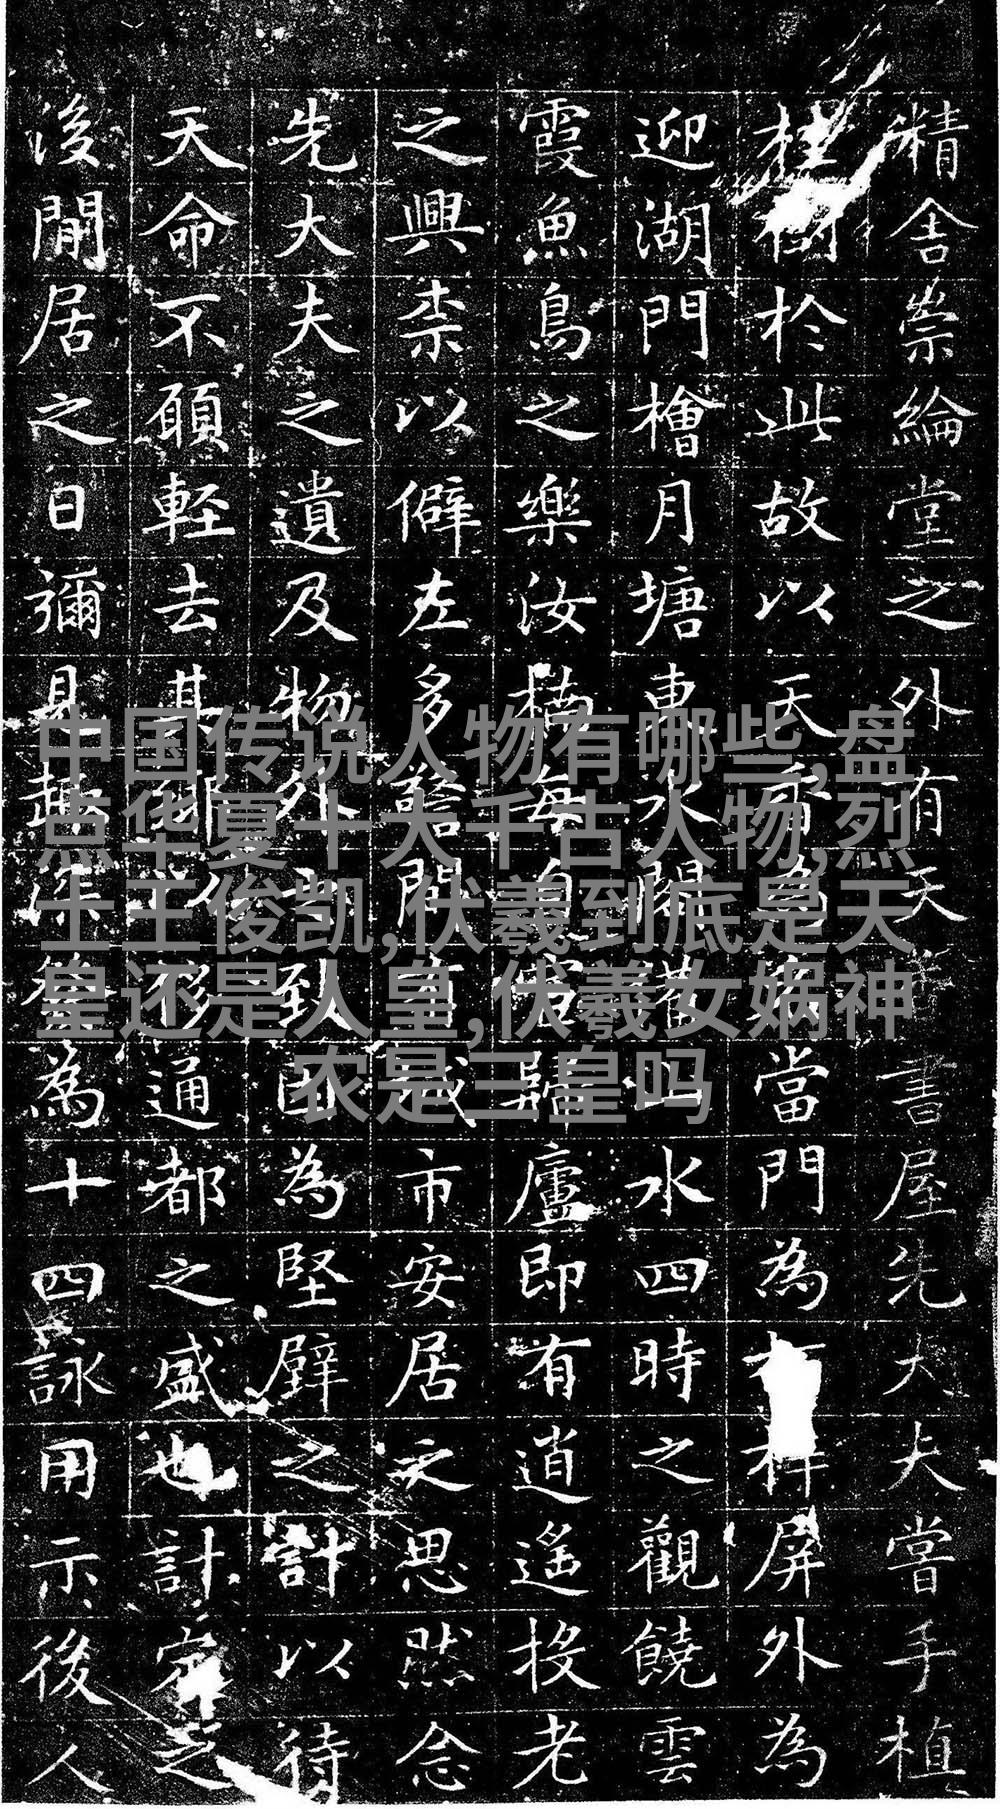 精舍崇綸堂之外有天書屋先大夫嘗手植
桂樹於此故以天當門為梓屏外為
迎湖門檜月塘東水閣止水四時之觀饒雲
霞魚鳥之樂汝楠每自歸廬即有逍遙投老
之興柰以僻左多間城市安居之思然念
先大夫之遺及物外致為堅壁之計以待
天命不願輕去其通都之盛也計定之
後閒居之日彌見趣深為十四詠用示後人
中国传说人物有哪些,盘
点华夏十大千古人物,烈
士王俊凯,伏羲到底是天
皇还是人皇,伏羲女娲神
农是三皇吗